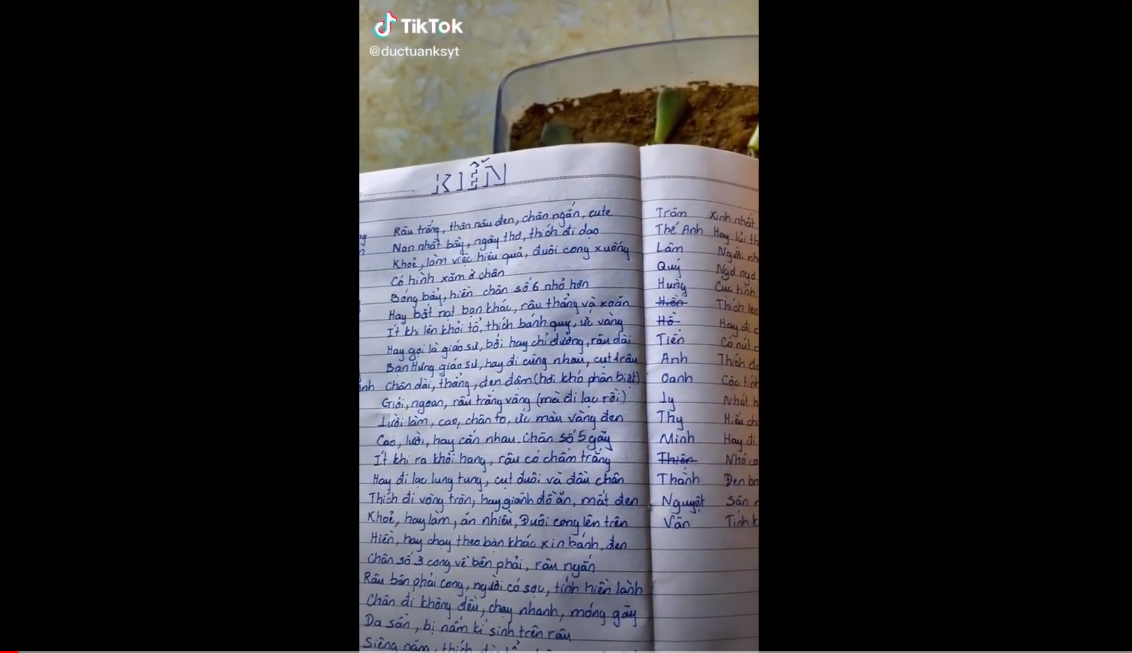 TikTok
@ductuanksyt
KIẾN
Râu trắng, thân nâu đen, chân ngắn, cute
Non nhất bầy, ngây thơ, thích đi dạo
Khoẻ, làm việc hiệu quả, đuôi cong xuống
Có hình xăm ở chân
Bóng bẩy, hiền chân số 6 nhỏ hơn
Hay bắt nạt bạn khác, râu thẳng và xoăn
Ít khi lên khỏi tổ, thích bánh quy, ức vàng
Hay gọi là giáo sư, bởi hay chỉ đường, râu dài
Bạn Hưng giáo sư, hay đi cùng nhau, cụt 1 râu
Chân dài, thẳng, đen đậm (hơi khó phân biệt)
Giỏi, ngoan, râu trắng vàng (mà đi lạc rồi)
Lười lắm, cao, chân to, ức màu vàng đen
Cao, lười, hay cắn nhau. Chân số 5 gãy
Ít khi ra khỏi hang, râu có chấm trắng
Hay đi lạc lung tung, cụt đuôi và đầu chân
Thích đi vòng tròn, hay giành đồ ăn, mắt đen
Khoẻ, hay làm, ăn nhiều, Đuôi cong lên trên
Hiền, hay chạy theo bạn khác xin bánh, đen
Chân số 3 cong về bên phải, râu ngắn
Râu bên phải cong, người có sọc, tính hiền lành
Chân đi không đều, chạy nhanh, móng gãy
Da sần, bị nấm kí sinh trên râu
Siêng năng, thích
Trâm Xinh nhất
Thế Anh Hay lủi
Lâm Người
Quý Ngơ ngơ
Hưng Cục tính
Hiền Thích
Hồ Hay đi
Tiến Có nút
Anh Thích
Oanh Cộc tính
Ly Nhát
Thy Hiếu
Minh Hay đi
Thiện Nhỏ
Thành Đen
Nguyệt Săn
Vân Tính